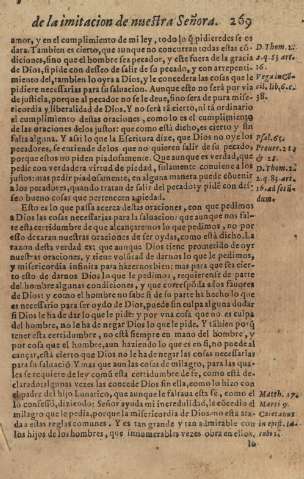 de la imitacion de nuestra Señora. 269
amor, y en el cumplimiento de mi ley, todo lo q̃ pidieredes se os
dara. Tambien es cierto, que aunque no concurran todas estas cõ-
diciones, sino que el hombre sea pecador, y este fuera de la gracia
de Dios, si pide con desseo de salir de su pecado, y con arrepenti-
miento del, tambien lo oyra a Dios, y le concedera las cosas que le
pidiere necessarias para su saluacion. Aunque esto no sera por via
de justicia, porque al pecador no se le deue, sino sera de pura mise-
ricordia y liberalidad de Dios. Y no sera tã cierto, ni tã ordinario
el cumplimiento destas oraciones, como lo es el cumplimiento
de las oraciones de los justos: que como està dicho, es cierto y sin
falta alguna. Y assi lo que la Escritura dize, que Dios no oye los
pecadores, se entiende de los que no quieren salir de su pecado,
porque estos no piden piadosamente. Que aunque es verdad, que
pedir con verdadera virtud de piedad, solamente conuiene a los
justos: mas pedir piadosamente, en alguna manera puede cõuenir
a los pecadores, quando tratan de salir del pecado y pidẽ con des-
seo buenas cosas que pertenecen a piedad.
Esto es lo que passa acerca destas oraciones, con que pedimos
a Dios las cosas necessarias para la saluacion: que aunque nos fal-
te esta certidumbre de que alcançaremos lo que pedimos, no por
esso dexaran nuestras oraciones de ser oydas, como està dicho. La
razon desta verdad es: que aunque Dios tiene prometido de oyr
nuestras oraciones, y tiene volũtad de darnos lo que le pedimos,
y misericordia infinita para hazernos bien: mas para que sea cier-
to esto de darnos Dios lo que le pedimos, requierense de parte
del hombre algunas condiciones, y que corresponda a los fauores
de Dios: y como el hombre no sabe si de su parte ha hecho lo que
es necessario para ser oydo de Dios, puede sin culpa alguna dudar
si Dios le ha de dar lo que le pide: y por vna cosa que no es culpa
del hombre, no le ha de negar Dios lo que le pide. Y tãbien porq̃
tener esta certidumbre, no està siempre en mano del hombre, y
por cosa que el hombre, aun haziendo lo que es en si, no puede al-
cançar, està cierto que Dios no le ha de negar las cosas necessarias
para su saluaciõ. Y mas que aun las cosas de milagro, para las qua-
les se requiere de ley comũ esta certidumbre de fe, como està de-
clarado: algunas vezes las concede Dios sin ella, como lo hizo con
el padre del hijo Lunatico, que aunque le faltaua esta fe, como el
lo confessò, diziendo: Señor ayuda mi incredulidad, le cõcedio el
milagro que le pedia, porque la misericordia de Dios no esta ata-
da a estas reglas comunes. Y es tan grande y tan admirable con
los hijos de los hombres, que innumerables vezes obra en ellos,
lo
D. Thom. 2.
2. q. 83 art.
16.
38.
Psal. 65.
Prouer. 15
& 28.
D. Thom. 2.
2. q. 83. art.
16. ad secun-
dum.
Matth. 17.
Marci 9.
Caietanus